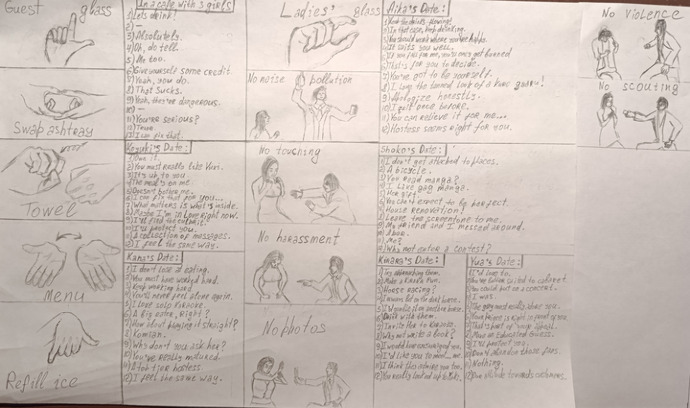 Guest glass
Swap ashtray
Towel
Menu
Refill ice
In a cafe with 3 girls
1) Let's drink!
2) -
3) Absolutely.
4) Oh, do tell.
5) Me too.
6) Give yourself some credit.
7) Yeah, you do.
8) That sucks.
9) Yeah, they're dangerous.
10) -
11) You're serious?
12) True.
13) I can fix that.
Koyuki's Date:
1) Own it.
2) You must really take
3) It's up to you.
4) The meal's on me.
5) Doesn't bother me.
6) I can fix that for you...
7) What matters is what's inside.
8) Maybe I'm in love right now.
9) I'll find the culprit.
10) I'll protect you.
11) A collection of messages.
12) I feel the same way.
Kana's Date:
1) I don't lose at eating.
2) You must have worked hard.
3) Keep working hard.
4) You'll never feel alone again.
5) I love solo karaoke.
6) A big sister, right?
7) How about playing it straight?
8) Romsan.
9) Why don't you ask her?
10) You've really matured.
11) A top-tier hostess.
12) I feel the same way.
Ladies' glass
No noise pollution
No touching
No harassment
No photos
Aika's Date:
1) Keep the drinks flowing!
2) In that case, keep drinking.
3) You should work where you're happy.
4) It suits you well.
5)
6) That's for you to decide.
7) You've got to be yourself.
8) I love the tanned look of a
9) Apologize honestly.
10) I quit once before.
11) You can relieve it for me...
12) Hostess seems right for you.
Shoko's Date:
1) I don't get attached to places.
2) A bicycle.
3) You read manga?
4) I like gag manga.
5) Her gift.
6) You can't expect to be perfect.
7) House renovation?
8) Leave the screentone to me.
9) My friend and I messed around.
10) A bug.
11) Me?
12) Why not enter a contest?
Kiara's Date:
1) Try alternating them.
2) Make a knuckle pun.
3) Horse racing?
4) I would bet on the dark horse.
5) I'd gamble it on another horse.
6)
7) Invite her to karaoke.
8) Why not write a book?
9) I would have encouraged you.
10) I'd like you to meet...me.
11) I think this is before you too.
12) You really looked up to
Yua's Date:
1) I'd love to.
2) You're better suited to cabaret.
3) You could put on a concert.
4) I was.
5) The guy must really like you.
6) Your prince is right in front of you.
7) That's part of your appeal.
8) Make an educated guess.
9) I'll protect you.
10) Don't abandon those fans.
11) Nothing.
12) Our attitude towards customers.
No violence
No scouting